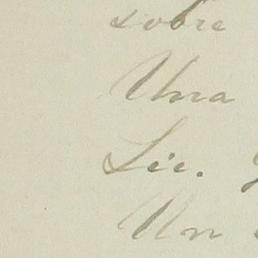 sobre
Una
Lic.
Un